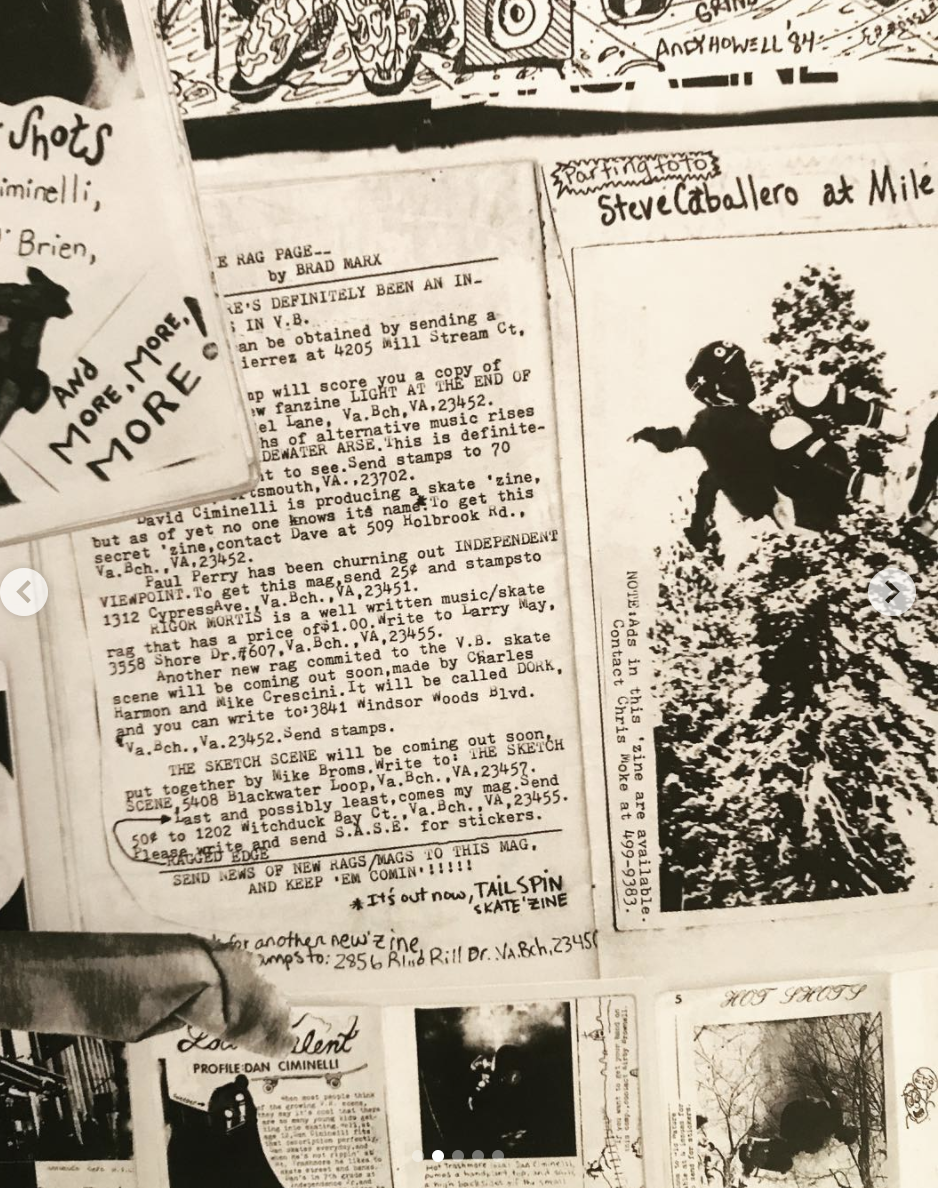 GRIND
ANDY HOWELL '84
Shots
iminelli,
O'Brien,
AND
MORE, MORE,
MORE!
E RAG PAGE--
by BRAD MARX
RE'S DEFINITELY BEEN AN IN-
IN V.B.
an be obtained by sending a
ierrez at 4205 Mill Stream Ct,
mp will score you a copy of
ew fanzine LIGHT AT THE END OF
el Lane, Va.Bch,VA,23452.
hs of alternative music rises
DEWATER ARSE.This is definite-
t to see.Send stamps to 70
rtsmouth,VA.,23702.
David Ciminelli is producing a skate 'zine,
but as of yet no one knows its name.*To get this
secret 'zine,contact Dave at 509 Holbrook Rd.,
Va.Bch.,VA,23452.
Paul Perry has been churning out INDEPENDENT
VIEWPOINT.To get this mag,send 25¢ and stampsto
1312 CypressAve.,Va.Bch.,VA,23451.
RIGOR MORTIS is a well written music/skate
rag that has a price of$1.00.Write to Larry May,
3558 Shore Dr.#607,Va.Bch.,VA,23455.
Another new rag commited to the V.B. skate
scene will be coming out soon,made by Charles
Harmon and Mike Crescini.It will be called DORK,
and you can write to:3841 Windsor Woods Blvd.
Va.Bch.,Va.23452.Send stamps.
THE SKETCH SCENE will be coming out soon,
put together by Mike Broms.Write to: THE SKETCH
SCENE,5408 Blackwater Loop,Va.Bch.,VA,23457.
Last and possibly least,comes my mag.Send
50¢ to 1202 Witchduck Bay Ct.,Va.Bch.,VA,23455.
Please write and send S.A.S.E. for stickers.
RAGGED EDGE
SEND NEWS OF NEW RAGS/MAGS TO THIS MAG,
AND KEEP 'EM COMIN'!!!!!
* It's out now, TAILSPIN
SKATE 'ZINE
for another new 'zine
amps to: 2856 Rill Dr. Va.Bch, 2345
Parting foto
Steve Caballero at Mile
NOTE:Ads in this 'zine are available.
Contact Chris Moke at 499-9383.
PROFILE:DAN CIMINELLI
When most people think
of the growing V.B. scene,
5
HOT SHOTS